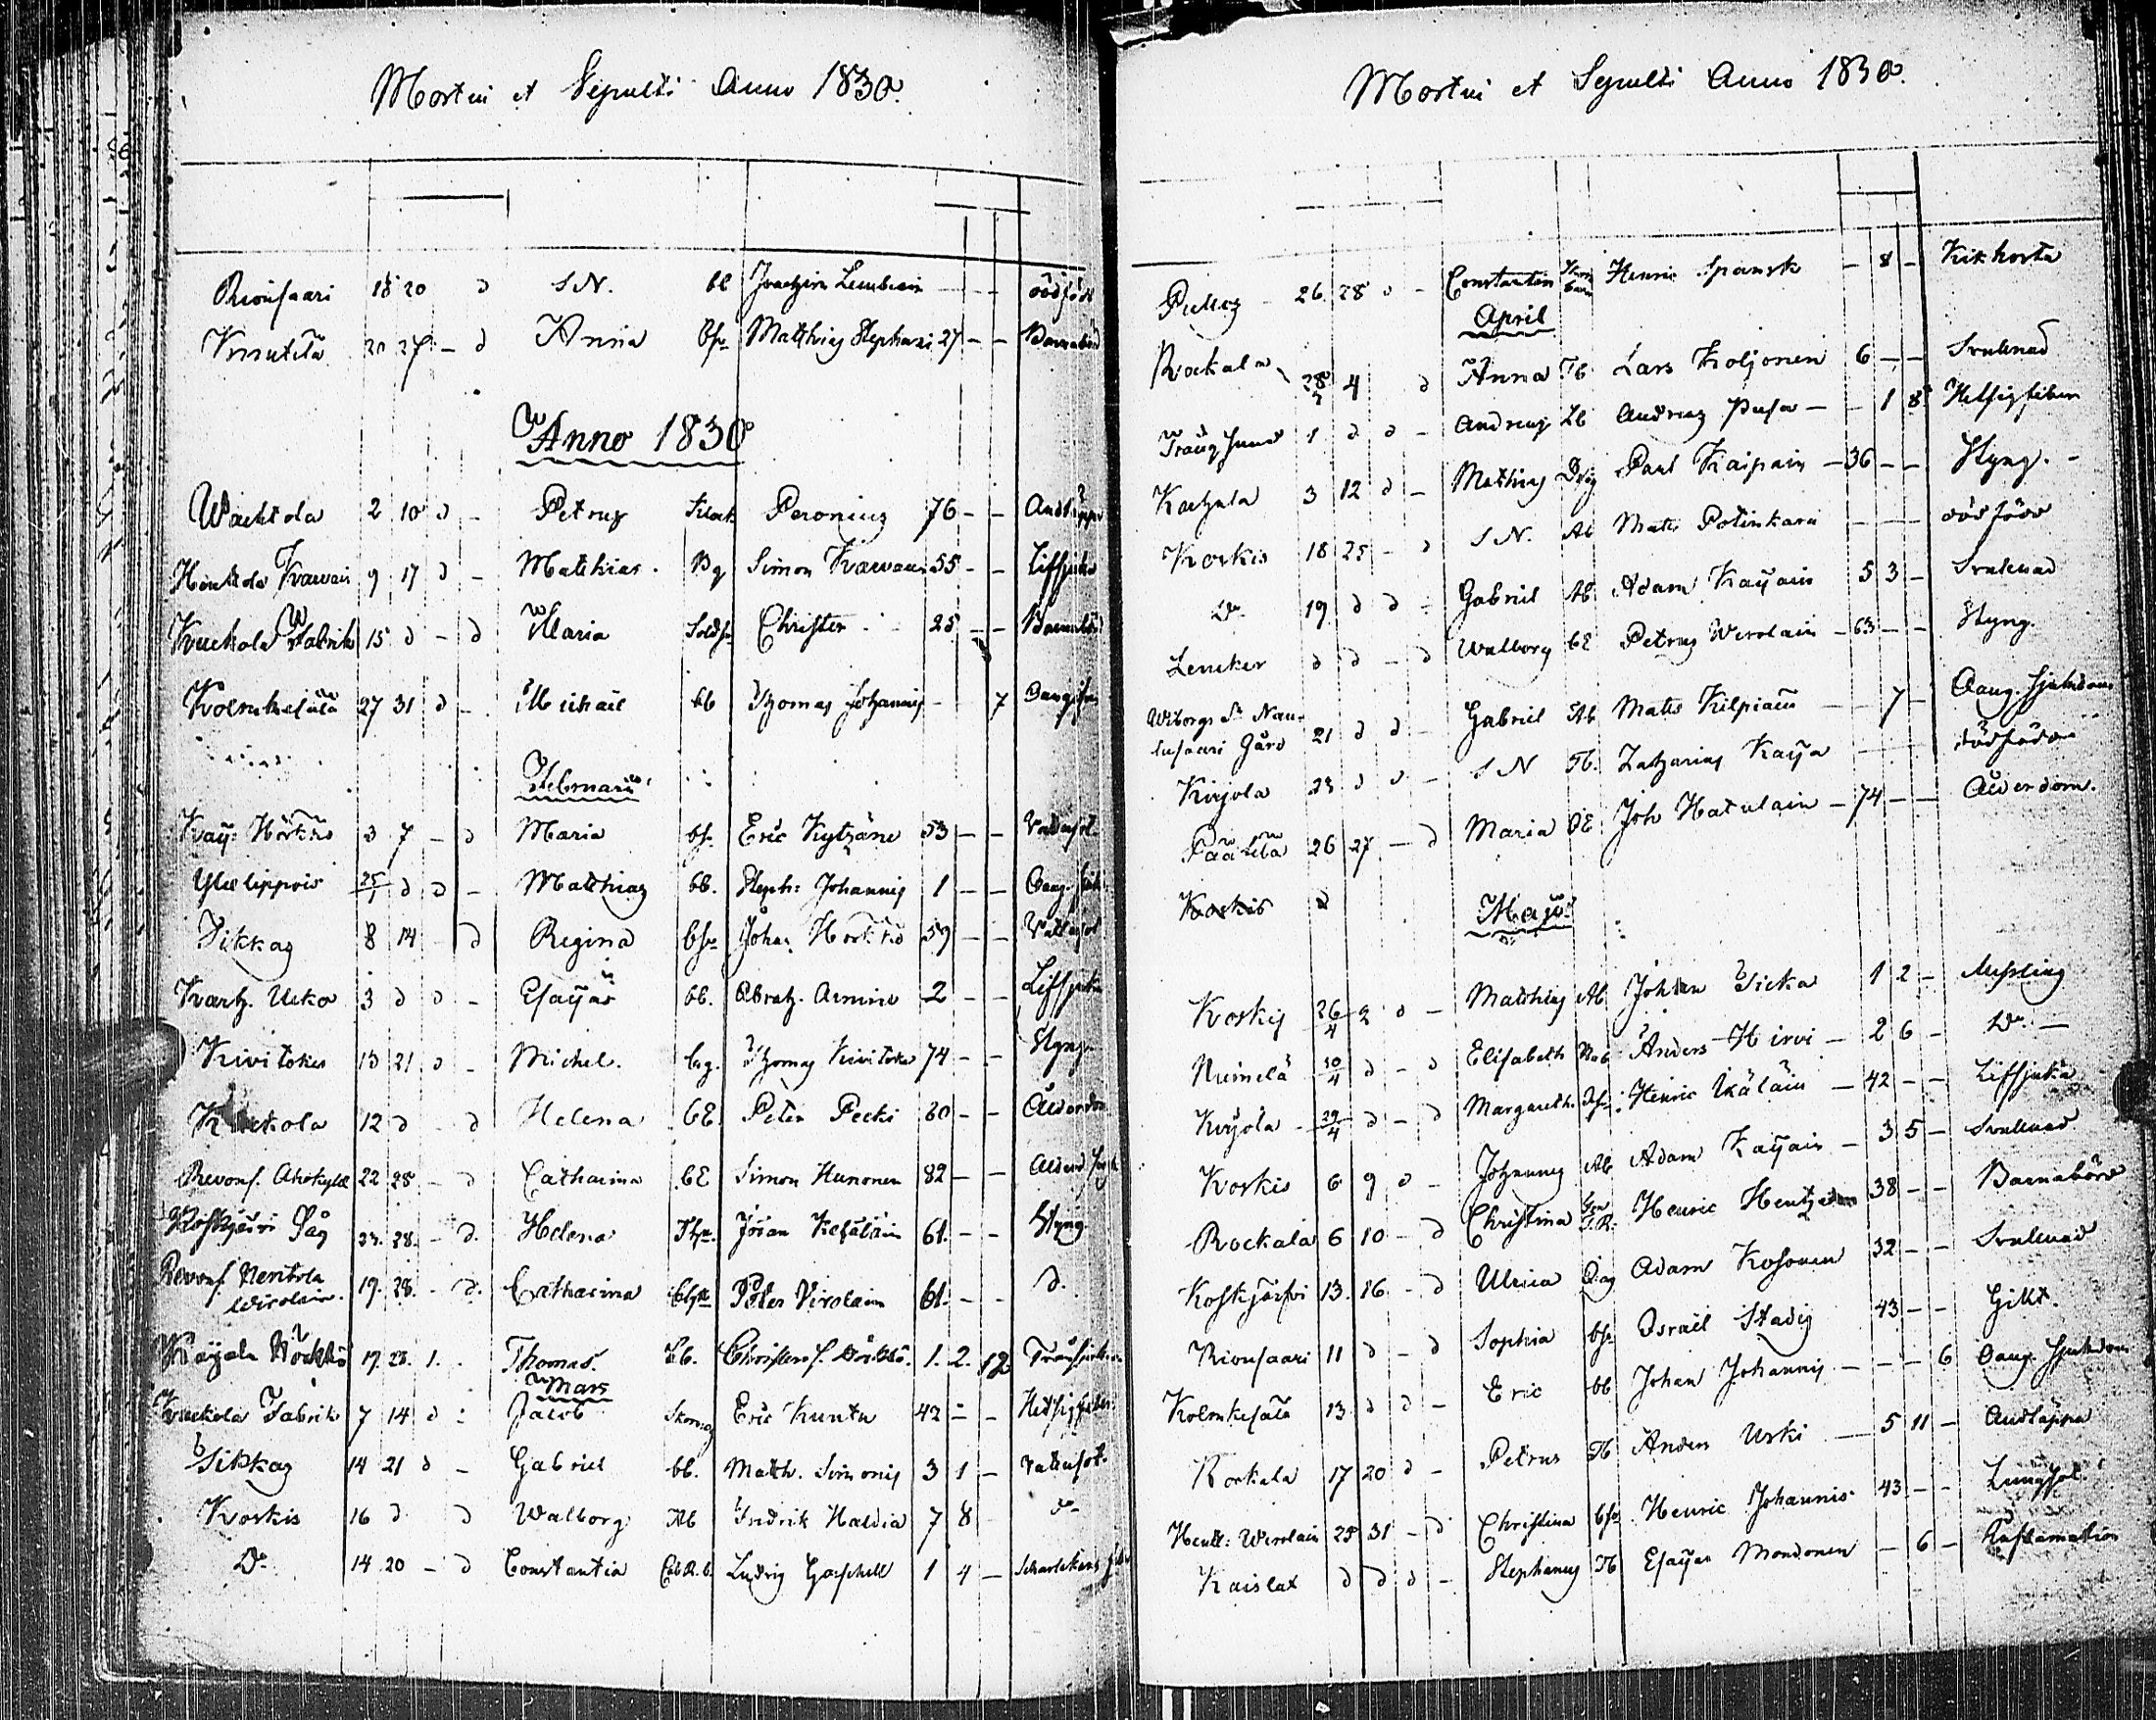 Mortui et Sepulti Anno 1830.
Rionsaari 18 20 d S.N. bb Joachim Lembiain - - - dödfödt
Knuutila 20 27 - d Anna Bhu Matthias Stephani 27 - - Barnabörd
Anno 1830
Wachtola 2 10 d - Petrus Peronius 76 - - Andtäppa
Heikkola Krawain 9 17 d - Matthias. Bg Simon Krawain 55 - - Liffsjuka
Kuckola Fabrik 15 d - d Maria Soldh. Christer 25 - - Barnabörd
Kolmikesälä 27 31 d - Michaël bb Thomas Johannis - 7
Februari
Kay: Hörkkö 3 7 - d Maria bh. Eric Kytzäne 53 - - Vattusot
Ylälippois 25/1 d d - Matthias bb. Steph: Johannis 1 - -
Sikkas 8 14 - d Regina bhu Johan Hörkkö 59 - - Vattusot
Kartz. Usko 3 d d - Esayas bb. Abrah. Armine 2 - - Liffsjuka
Kivitokes 13 21 d - Michel. bg. Thomas Kivitoke 74 - - Styng
Kuckola 12 d - d Helena bE Peter Pecki 60 - - Ålderdom
Revons. Ahokylä 22 28 - d Catharina bE Simon Hunonen 82 - -
Koskijärvi Såg 23. 28. - d. Helena Thu. Jöran Kesäläin 61. - - Styng
Revons. Nentola Wirolain. 19. 28. - d. Catharina Peter Virolain 61. - - d.
Kayala Hörkkö 19. 28. 1. Thomas. bb. Christers. Hörkkö. 1. 2. 12
Mars
Kuckola Fabrik 7 14 d - Jacob Eric Kuntu 42 - -
Sikkas 14 21 d - Gabriel bb. Matth. Simonis 3 1 - Vattusot
Korkis 16 d d Walborg Ab Fredrik Haldia 7 8 - do
Do 14 20 - d Constantia Ludvig Gorschell 1 4 - Scharlakans feber
Mortui et Sepulti Anno 1830.
Pullis 26 28 d - Constantin Henric Spansk - 8 - Kikhosta
April
Rockala 28/3 4 d Anna Tb Lars Koljonen 6 - - Svullnad
Trångsund 1 d d - Andreas Lb Andreas Pusa - - 1 8
Kaehala 3 12 d - Mathias Drg Paul Kaipain - 36 - - Styng. -
Korkis 18 25 - d S N. Ab Mats Potinkara - - - dödfödd
Do 19 d d - Gabriel Ab Adam Kayain 5 3 - Svullnad
Lencker d d - d Walborg bE Petrus Wirolain - 63 - - Styng.
Wiborgs Sn Naulusaari Gård 21 d d - Gabriel Ab Mats Kilpiain - 7 - Oang. Sjukdom
Kirjola 23 d d - S N Tb. Zacharias Kaya - dödfödd
Päälilä 26 27 - d Maria bE Joh Hatulain - 74 - - Ålderdom.
Korkis d Maji
Korkis 26/4 2 d - Matthias Ab Johan Sicka 1 2 - Messling
Niemelä 30/4 d - d Elisabeth Anders Hirvi - 2 6 - Do -
Kirjola 29/4 d - d Margareth Henric Ikäläin - 42 - - Liffsjuka
Korkis 6 9 d - Johannes Ab Adam Kayain - 3 5 - Svullnad
Rockala 6 10 - d Christina Henric Hentzelan 38 - - Barnabörd
Koskjärfvi 13. 16 - d Ulrica Adam Kosonen 32 - - Svullnad
Rionsaari 11 d - d Sophia bh. Israël Stadig 43 - - Gikt.
Kolmikesälä 13 d d - Eric bb Johan Johannis - - - 6 Oang. Sjukdom
Rockala 17 20 d - Petrus Tb Anders Uski - 5 11 - Andtäppa
Heikk: Wirolain 28 31 - d Christina bhu Henric Johannis 43 - - Lungsot
Kaislax d d d - Stephanus Tb Esayas Mondonen - 6 - Inflamation